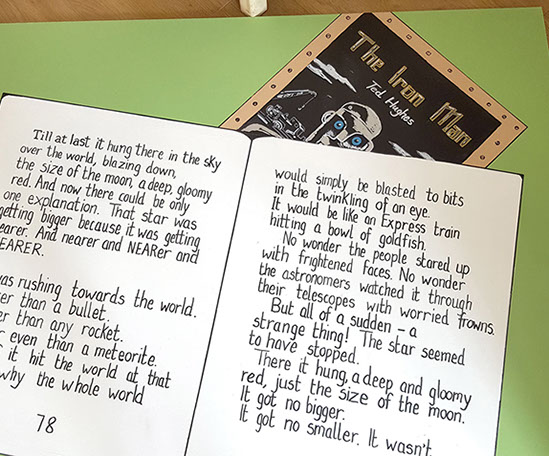 The Iron Man
Ted Hughes
Till at last it hung there in the sky
over the world, blazing down,
the size of the moon, a deep, gloomy
red. And now there could be only
one explanation. That star was
getting bigger because it was getting
nearer. And nearer and NEARer and
NEARER.
was rushing towards the world.
than a bullet.
than any rocket.
even than a meteorite.
it hit the world at that
why the whole world
78
would simply be blasted to bits
in the twinkling of an eye.
It would be like an Express train
hitting a bowl of goldfish.
No wonder the people stared up
with frightened faces. No wonder
the astronomers watched it through
their telescopes with worried frowns.
But all of a sudden – a
strange thing! The star seemed
to have stopped.
There it hung, a deep and gloomy
red, just the size of the moon.
It got no bigger.
It got no smaller. It wasn't